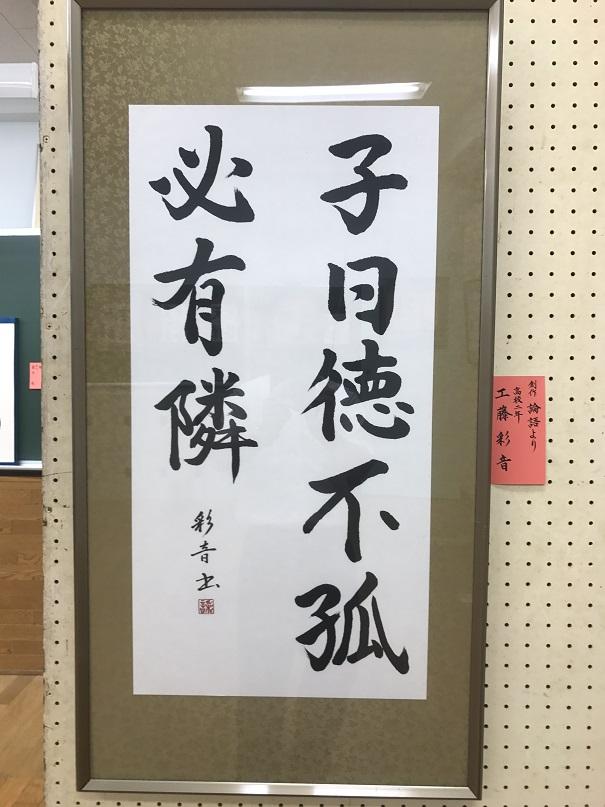 子曰徳不孤
必有隣
彩音書
創作 論語より
高校二年
工藤彩音